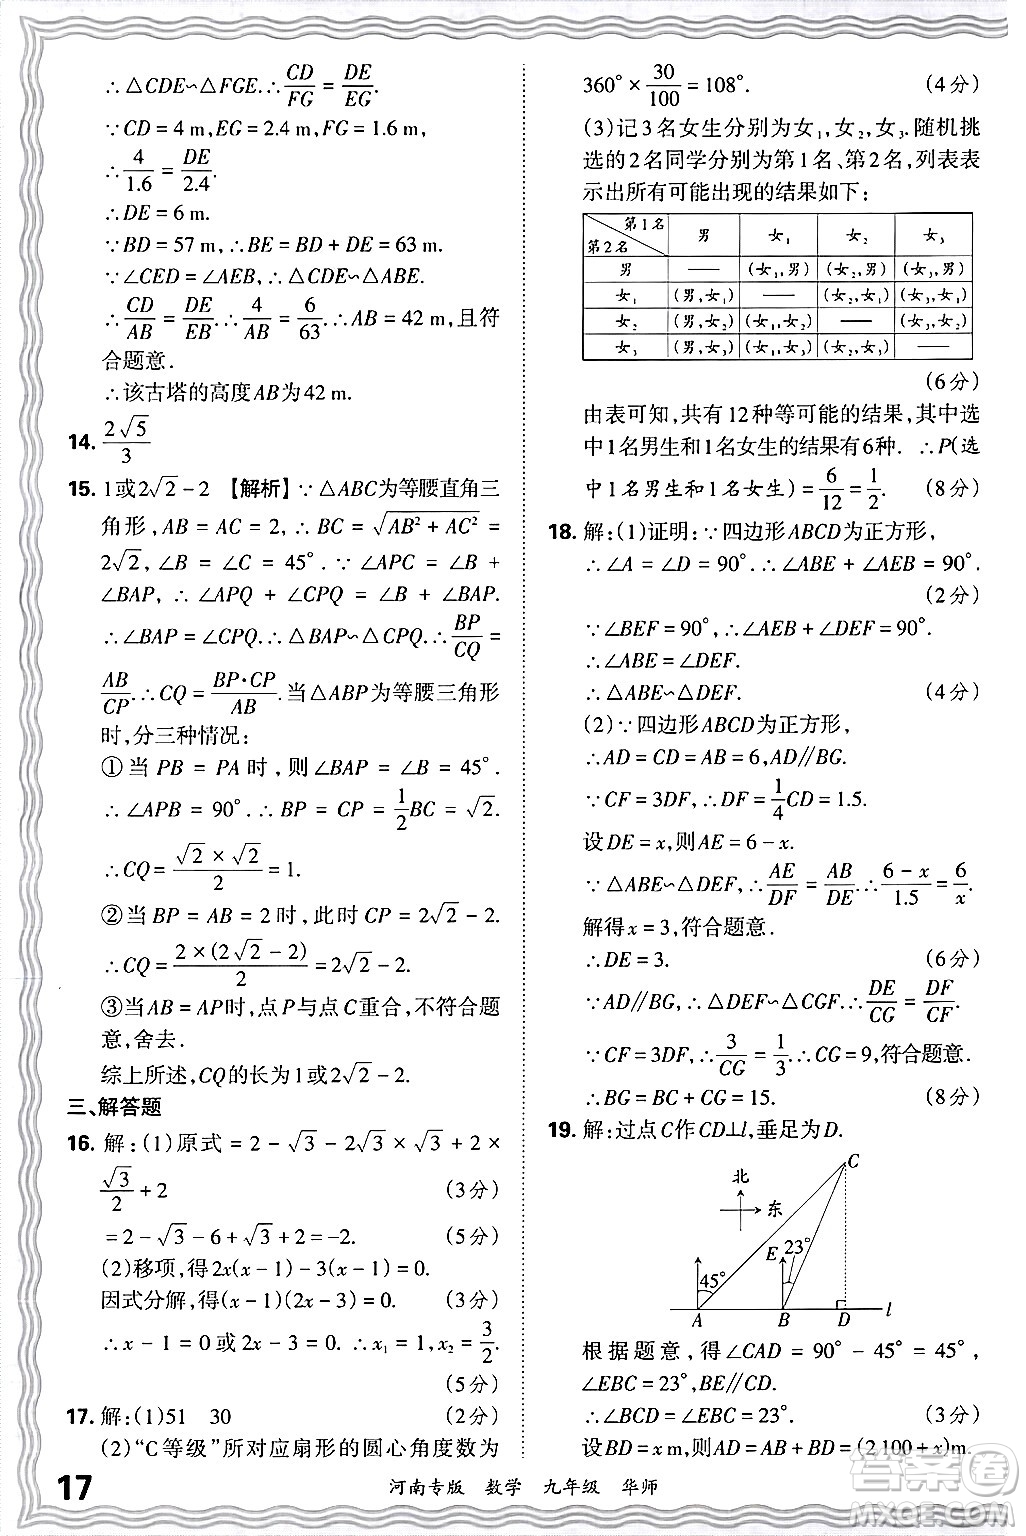 ∴△CDE∽△FGE.∴CD/FG = DE/EG.
∵CD = 4 m,EG = 2.4 m,FG = 1.6 m,
∴4/1.6 = DE/2.4.
∴DE = 6 m.
∵BD = 57 m,∴BE = BD + DE = 63 m.
∵∠CED = ∠AEB,∴△CDE∽△ABE.
∴CD/AB = DE/EB.∴4/AB = 6/63.∴AB = 42 m,且符
合题意.
∴该古塔的高度AB为42 m.
14. 2√5/3
15. 1或2√2 - 2 【解析】∵△ABC为等腰直角三
角形,AB = AC = 2,∴BC = √(AB² + AC²) =
2√2,∠B = ∠C = 45°.∵∠APC = ∠B +
∠BAP,∴∠APQ + ∠CPQ = ∠B + ∠BAP.
∴∠BAP = ∠CPQ.∴△BAP∽△CPQ.∴BP/CQ =
AB/CP.∴CQ = BP·CP/AB.当△ABP为等腰三角形
时,分三种情况:
①当PB = PA时,则∠BAP = ∠B = 45°.
∴∠APB = 90°.∴BP = CP = 1/2BC = √2.
∴CQ = √2 × √2/2 = 1.
②当BP = AB = 2时,此时CP = 2√2 - 2.
∴CQ = 2 × (2√2 - 2)/2 = 2√2 - 2.
③当AB = AP时,点P与点C重合,不符合题
意,舍去.
综上所述,CQ的长为1或2√2 - 2.
三、解答题
16. 解:(1)原式 = 2 - √3 - 2√3 × √3 + 2 ×
√3/2 + 2 (3分)
= 2 - √3 - 6 + √3 + 2 = -2. (5分)
(2)移项,得2x(x - 1) - 3(x - 1) = 0.
因式分解,得(x - 1)(2x - 3) = 0. (3分)
∴x - 1 = 0或2x - 3 = 0.∴x₁ = 1,x₂ = 3/2.
(5分)
17. 解:(1)51 30 (2分)
(2)“C等级”所对应扇形的圆心角度数为
360° × 30/100 = 108°. (4分)
(3)记3名女生分别为女₁,女₂,女₃.随机挑
选的2名同学分别为第1名、第2名,列表表
示出所有可能出现的结果如下:
第1名 第2名 男 女₁ 女₂ 女₃
男 —— (女₁,男) (女₂,男) (女₃,男)
女₁ (男,女₁) —— (女₂,女₁) (女₃,女₁)
女₂ (男,女₂) (女₁,女₂) —— (女₃,女₂)
女₃ (男,女₃) (女₁,女₃) (女₂,女₃) ——
(6分)
由表可知,共有12种等可能的结果,其中选
中1名男生和1名女生的结果有6种.∴P(选
中1名男生和1名女生) = 6/12 = 1/2. (8分)
18. 解:(1)证明:∵四边形ABCD为正方形,
∴∠A = ∠D = 90°.∴∠ABE + ∠AEB = 90°.
(2分)
∵∠BEF = 90°,∴∠AEB + ∠DEF = 90°.
∴∠ABE = ∠DEF.
∴△ABE∽△DEF. (4分)
(2)∵四边形ABCD为正方形,
∴AD = CD = AB = 6,AD∥BG.
∵CF = 3DF,∴DF = 1/4CD = 1.5.
设DE = x,则AE = 6 - x.
∵△ABE∽△DEF,∴AE/DF = AB/DE.∴6 - x/1.5 = 6/x.
解得x = 3,符合题意.
∴DE = 3. (6分)
∵AD∥BG,∴△DEF∽△CGF.∴DE/CG = DF/CF.
∵CF = 3DF,∴3/CG = 1/3.∴CG = 9,符合题意.
∴BG = BC + CG = 15. (8分)
19. 解:过点C作CD⊥l,垂足为D.
C
北
东
E 23°
45°
A B D l
根据题意,得∠CAD = 90° - 45° = 45°,
∠EBC = 23°,BE∥CD.
∴∠BCD = ∠EBC = 23°. (3分)
设BD = x m,则AD = (2 100 + x)m.
17 河南专版 数学 九年级 华师
答案圈
MXQE.COM